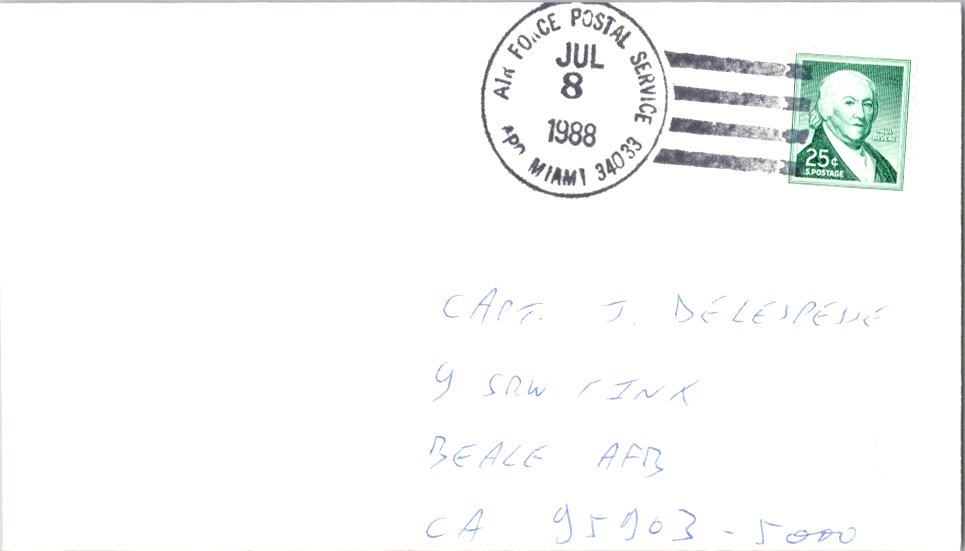 AIR FORCE POSTAL SERVICE
JUL
8
1988
APO MIAMI 34033
PAUL
REVERE
25¢
U.S. POSTAGE
CAPT. J. DELESPESSE
9 SRW / INX
BEALE AFB
CA 95903-5000